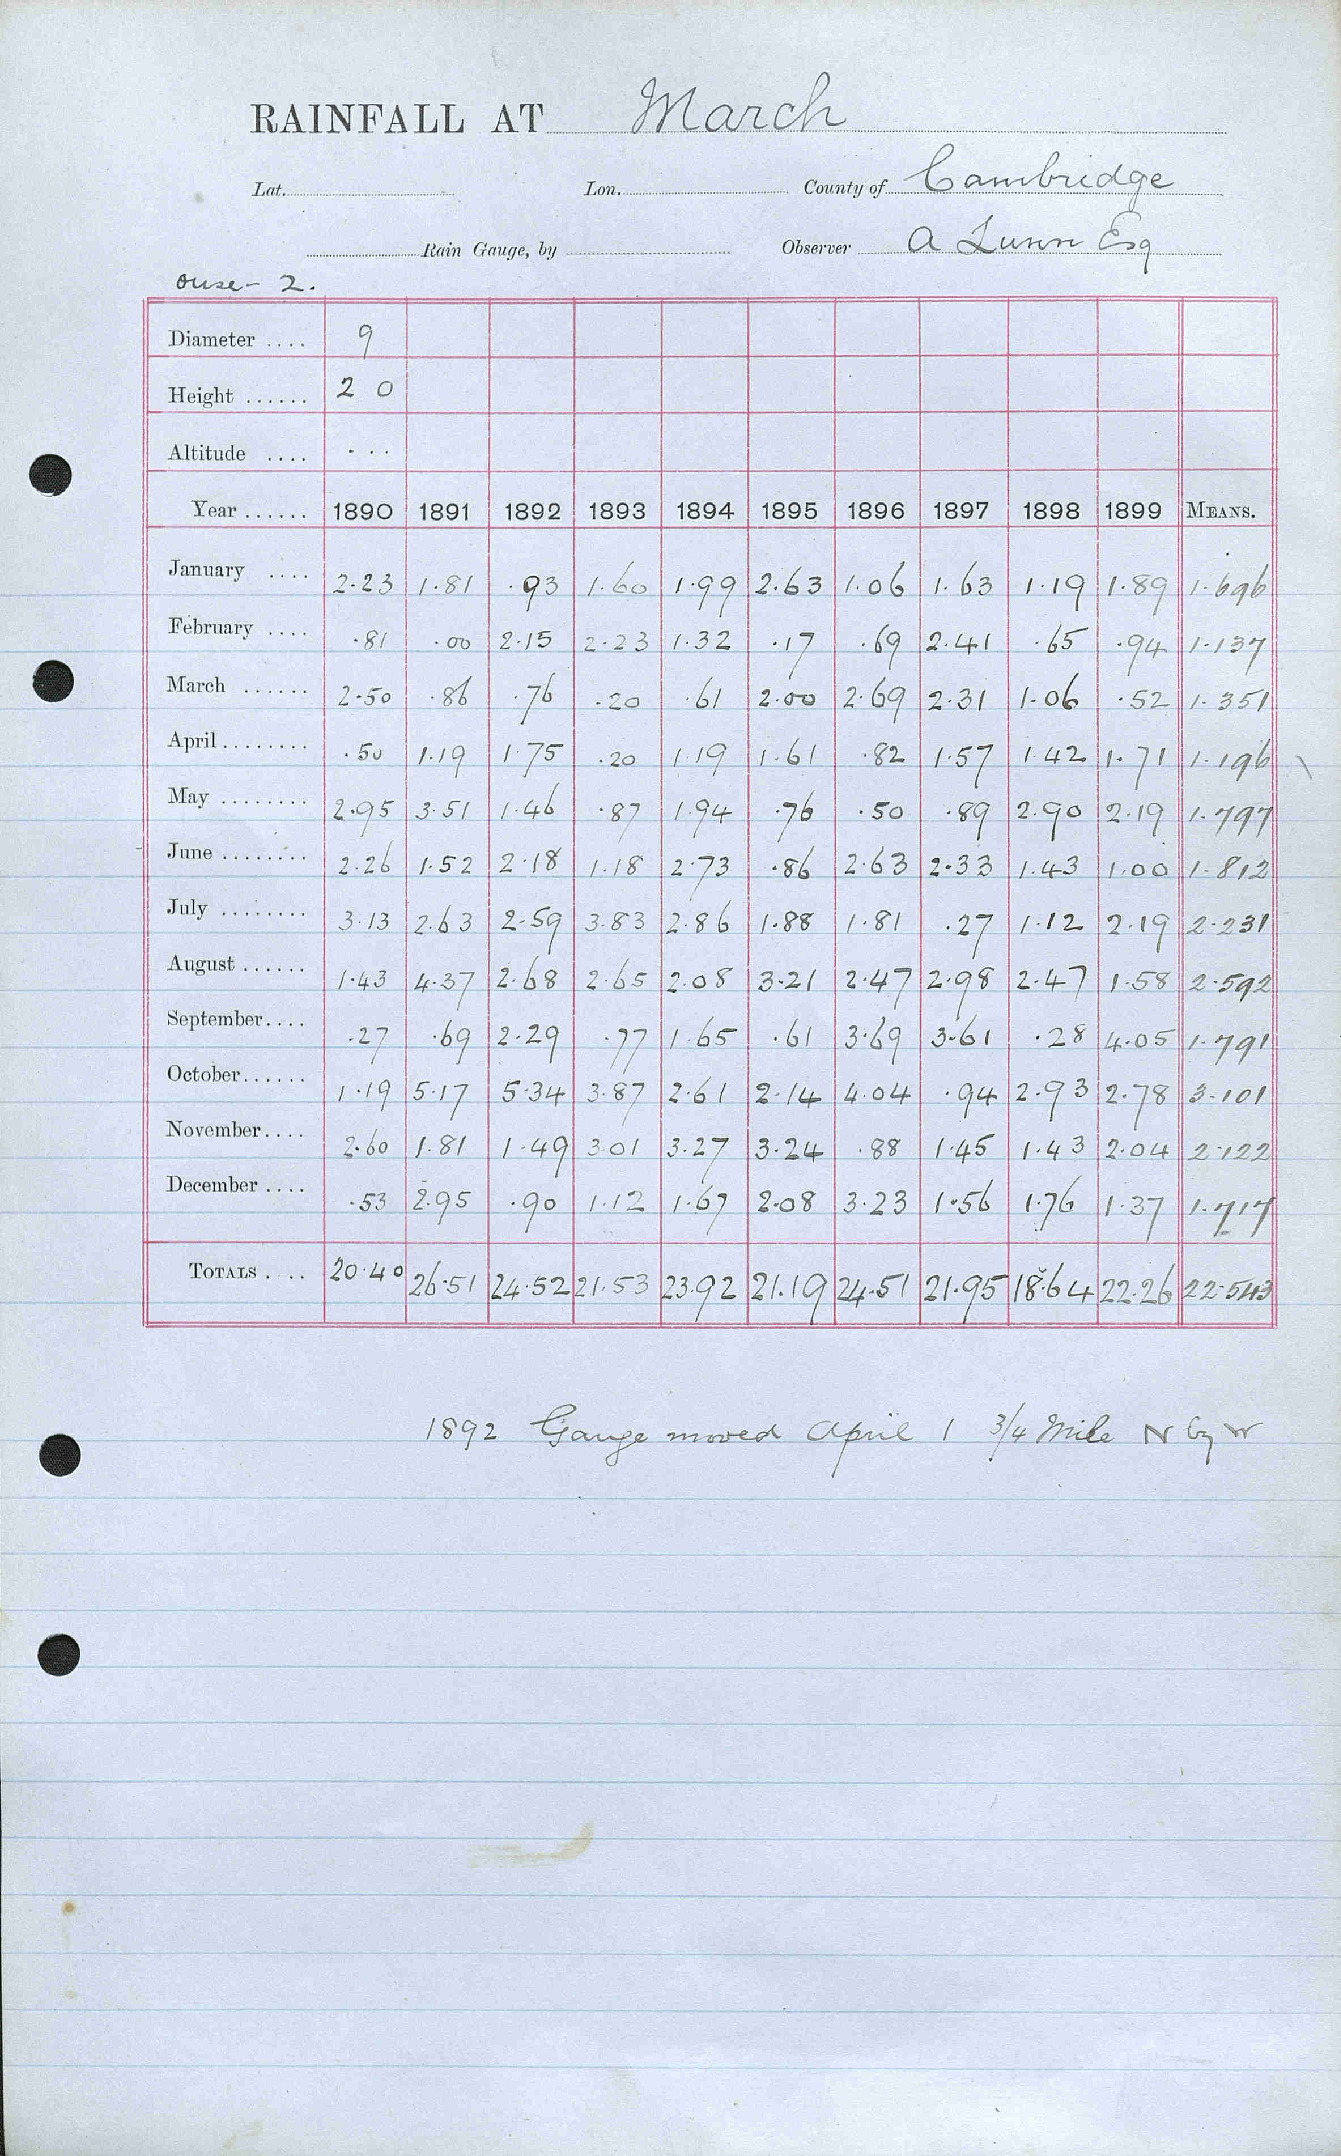 RAINFALL AT March
Lat. Lon. County of Cambridge
Rain Gauge, by Observer A Lunn Esq
Ouse - 2.
Diameter .... 9
Height ...... 2 0
Altitude .... ...
Year ...... 1890 1891 1892 1893 1894 1895 1896 1897 1898 1899 MEANS.
January .... 2.23 1.81 .93 1.60 1.99 2.63 1.06 1.63 1.19 1.89 1.696
February .... .81 .00 2.15 2.23 1.32 .17 .69 2.41 .65 .94 1.137
March ...... 2.50 .86 .76 .20 .61 2.00 2.69 2.31 1.06 .52 1.351
April ........ .50 1.19 1.75 .20 1.19 1.61 .82 1.57 1.42 1.71 1.196
May ........ 2.95 3.51 1.46 .87 1.94 .76 .50 .89 2.90 2.19 1.797
June ........ 2.26 1.52 2.18 1.18 2.73 .86 2.63 2.33 1.43 1.00 1.812
July ........ 3.13 2.63 2.59 3.83 2.86 1.88 1.81 .27 1.12 2.19 2.231
August ...... 1.43 4.37 2.68 2.65 2.08 3.21 2.47 2.98 2.47 1.58 2.592
September.... .27 .69 2.29 .77 1.65 .61 3.69 3.61 .28 4.05 1.791
October...... 1.19 5.17 5.34 3.87 2.61 2.14 4.04 .94 2.93 2.78 3.101
November.... 2.60 1.81 1.49 3.01 3.27 3.24 .88 1.45 1.43 2.04 2.122
December .... .53 2.95 .90 1.12 1.67 2.08 3.23 1.56 1.76 1.37 1.717
TOTALS .... 20.40 26.51 24.52 21.53 23.92 21.19 24.51 21.95 18.64 22.26 22.543
1892 Gauge moved April 1 3/4 Mile N by W